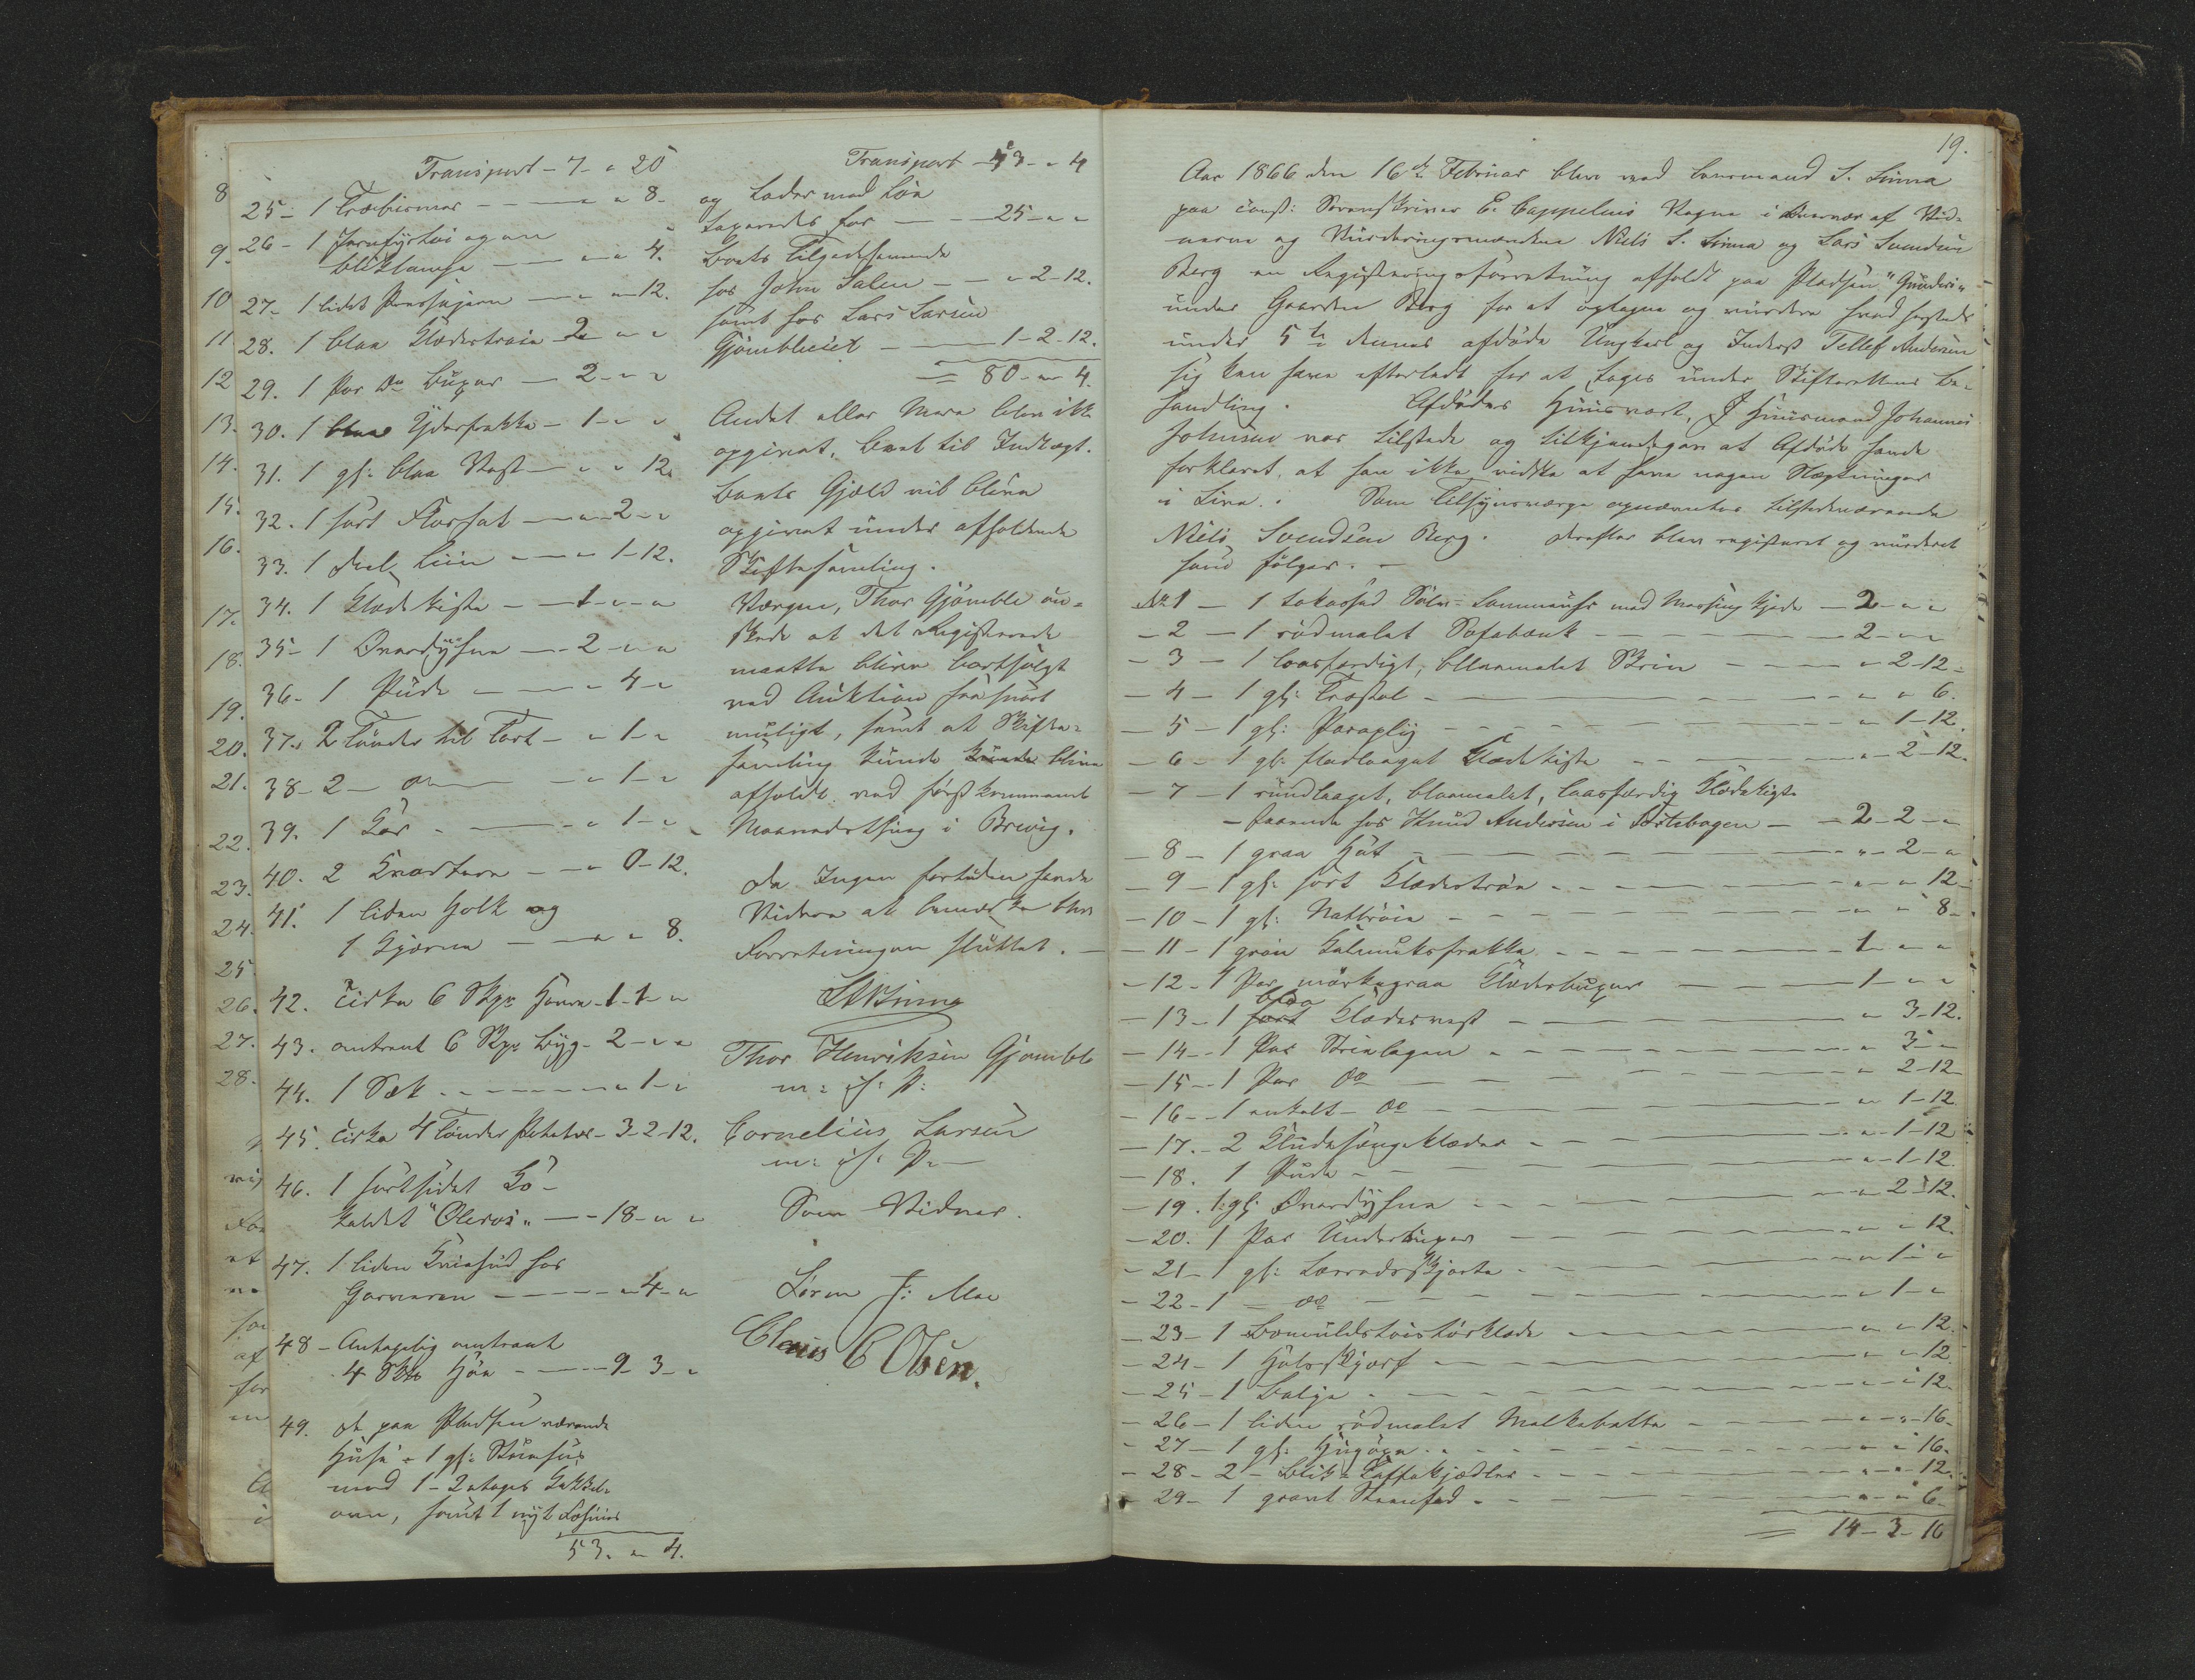 Transport - 7 - " 20
25 - 1 Træbismer - - - " " 8 -
26 - 1 Jernfyrtøi og en
bliklampe - - - " " 4.
27 - 1 lidet Pressejern - " " 12.
28. 1 blaa Klædestrøie - 2 " "
29. 1 Par Do Buxer - 2 - " "
30. 1 blaa Yderfrakke - 1 - " "
31. 1 gl: blaa Vest - " " 12.
32. 1 sort Floshat - " 2 - "
33. 1 Deel Liin - " 1 - 12.
34. 1 Klædekiste - 1 - " "
35 - 1 Overdyhne - 2 - " "
36 - 1 Pude - - " 4 - "
37. 2 Tønder til Tort - " 1 - "
38 - 2 - do - " 1 - "
39. 1 Kar - - " 1 - "
40. 2 Kvartere - - " 0 - 12.
41. 1 liden Holk og
1 Kjærne - - " " 8.
42. Cirka 6 Skpr Havre - 1 - 1 - "
43. omtrent 6 Skpr Byg - 2 - " "
44. 1 Sæk - - - - " 1 - "
45. Cirka 4 Tønder Poteter - 3 - 2 - 12.
46. 1 sortsidet Ko -
kaldet "Øleros" - 18 - " "
47. 1 liden Kviehud hos
Garveren - - - " 4 - "
48 - Antagelig omtrent
4 Sk℔ Høe - - - 9 - 3 - "
49. De paa Pladsen værende
Huse - 1 gl: Stuehus
med 1 - 2 etages Kakkel-
ovn, samt 1 nyt Fæhuus
53. " 4.
Transport - 53 - " 4
og Lader med Løe
taxeredes for - - 25 - " "
Boets Tilgodehavende
hos John Salen - - " 2 - 12.
samt hos Lars Larsen
Gjømbleeiet - - 1 - 2 - 12.
= 80 - " 4.
Andet eller Mere blev ikke
opgivet, Boet til Indtægt.
Boets Gjæld vil blive
opgivet under afholdende
Skiftesamling.
Værgen, Thor Gjømble øn-
skede at det Registrerede
maatte blive bortsolgt
ved Auktion saasnart
muligt, samt at Skifte-
samling kunde kunde blive
afholdt ved førstkommende
Maanedsthing i Brevig.
Da Ingen fortiden havde
Videre at bemærke blev
Forretningen sluttet. -
Thor Henriksen Gjømble
m: ih: P:
Cornelius Larsen
m: ih: P: -
Som Vidner.
Søren J: Moe
Claus C Olsen.
19.
Aar 1866 den 16de Februar blev ved Lensmand S. Linna
paa const: Sorenskriver E. Cappelens Vegne i Overvær af Vid-
nerne og Vurderingsmændene Niels S. Linna og Lars Svendsen
Berg en Registreringsforretning afholdt paa Pladsen "Gunderi"
under Gaarden Berg for at optegne og vurdere hvad herstede
under 5te dennes afdøde Ungkarl og Inderst Tellef Andersen
sig kan have efterladt for at tages under Skifterettens Be-
handling. Afdødes Huusvært, Huusmand Johannes
Johnsen var tilstede og tilkjendegav at Afdøde havde
forklaret, at han ikke vidste at have nogen Slægtninger
i Live. Som Tilsynsværge opnævntes tilstedeværende
Niels Svendsen Berg. Derefter blev registreret og vurderet
hvad følger. -
No 1 - 1 Sølv-Lommeuhr med Messing kjede - 2 - " "
- 2 - 1 rødmalet Sofabænk - - - 2 - " "
- 3 - 1 laasfærdigt, blaamalet Skrin - - - " 2 - 12 -
- 4 - 1 gl: Træstol - - - " " 6.
- 5 - 1 gl: Paraply - - - " 1 - 12.
- 6 - 1 gl. fladlaaget Klædekiste - - " 2 - 12.
- 7 - 1 rundlaaget, blaamalet, laasfærdig Klædekiste
- staaende hos Knud Andersen i - 2 - 2 - "
- 8 - 1 graa Hat - - - " 2 - "
- 9 - 1 gl: sort Klædestrøie - - - " " 12 -
- 10 - 1 gl: Nattrøie - - - " " 8 -
- 11 - 1 grøn Kalmuksfrakke - - - 1 - " "
- 12 - 1 Par mørkegraa Klædesbuxer - - 1 - " "
- 13 - 1 sort blaa Klædesvest - - " 3 - 12.
- 14 - 1 Par Strielagen - - - " 3 - "
- 15 - 1 Par do - - - " 2 - 12 -
- 16 - 1 enkelt - do - - - " 1 - 12
- 17. - 2 Kludesengeklæder - - - " 1 - 12
- 18. 1 Pude - - - " 1 - 12.
- 19. 1 gl: Overdyhne - - - " 2 - 12.
- 20. 1 Par Underbuxer - - - " " 12.
- 21 - 1 gl: Lærredsskjorte - - - " 1 - "
- 22 - 1 - do - - - " 1 - "
- 23 - 1 Bomuldstøistørklæde - - - " " 12.
- 24 - 1 Halsskjærf - - - " " 12
- 25 - 1 Balje - - - " " 12 -
- 26 - 1 liden rødmalet Melkebøtte - - - " " 16 -
- 27 - 1 gl: Hugøxe - - - " " 16 -
- 28 - 2 - Blik-Kaffekjedler - - - " " 12.
- 29 - 1 graat Steenfad - - - " " 6 -
= 14 - 3 - 16